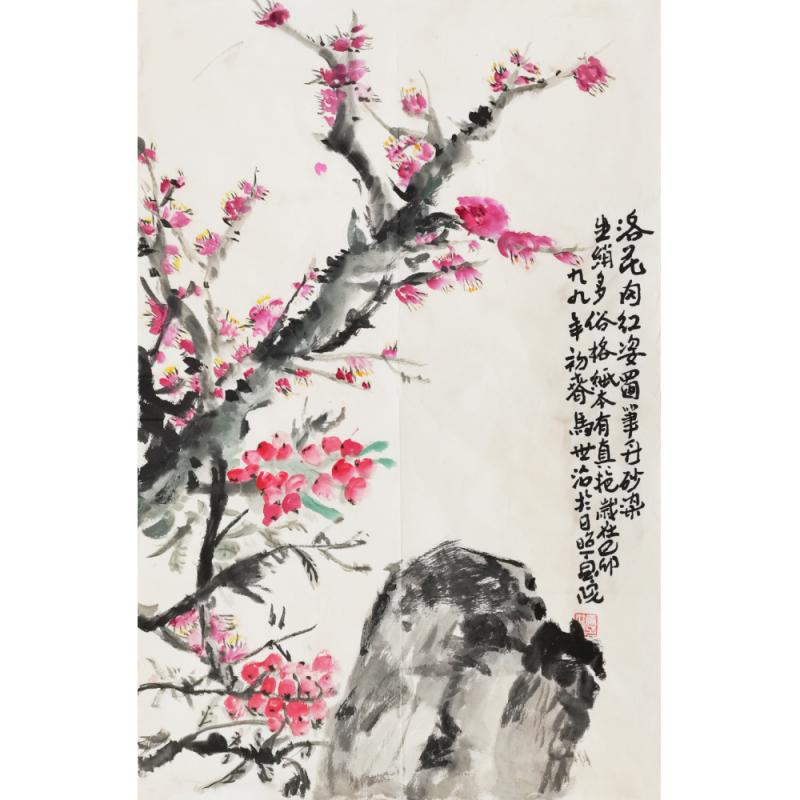 洛花肉红姿蜀筆丹砂染
生绡多俗格纸本有真艳歲在己卯
九九年初春馬世治於日昭画院